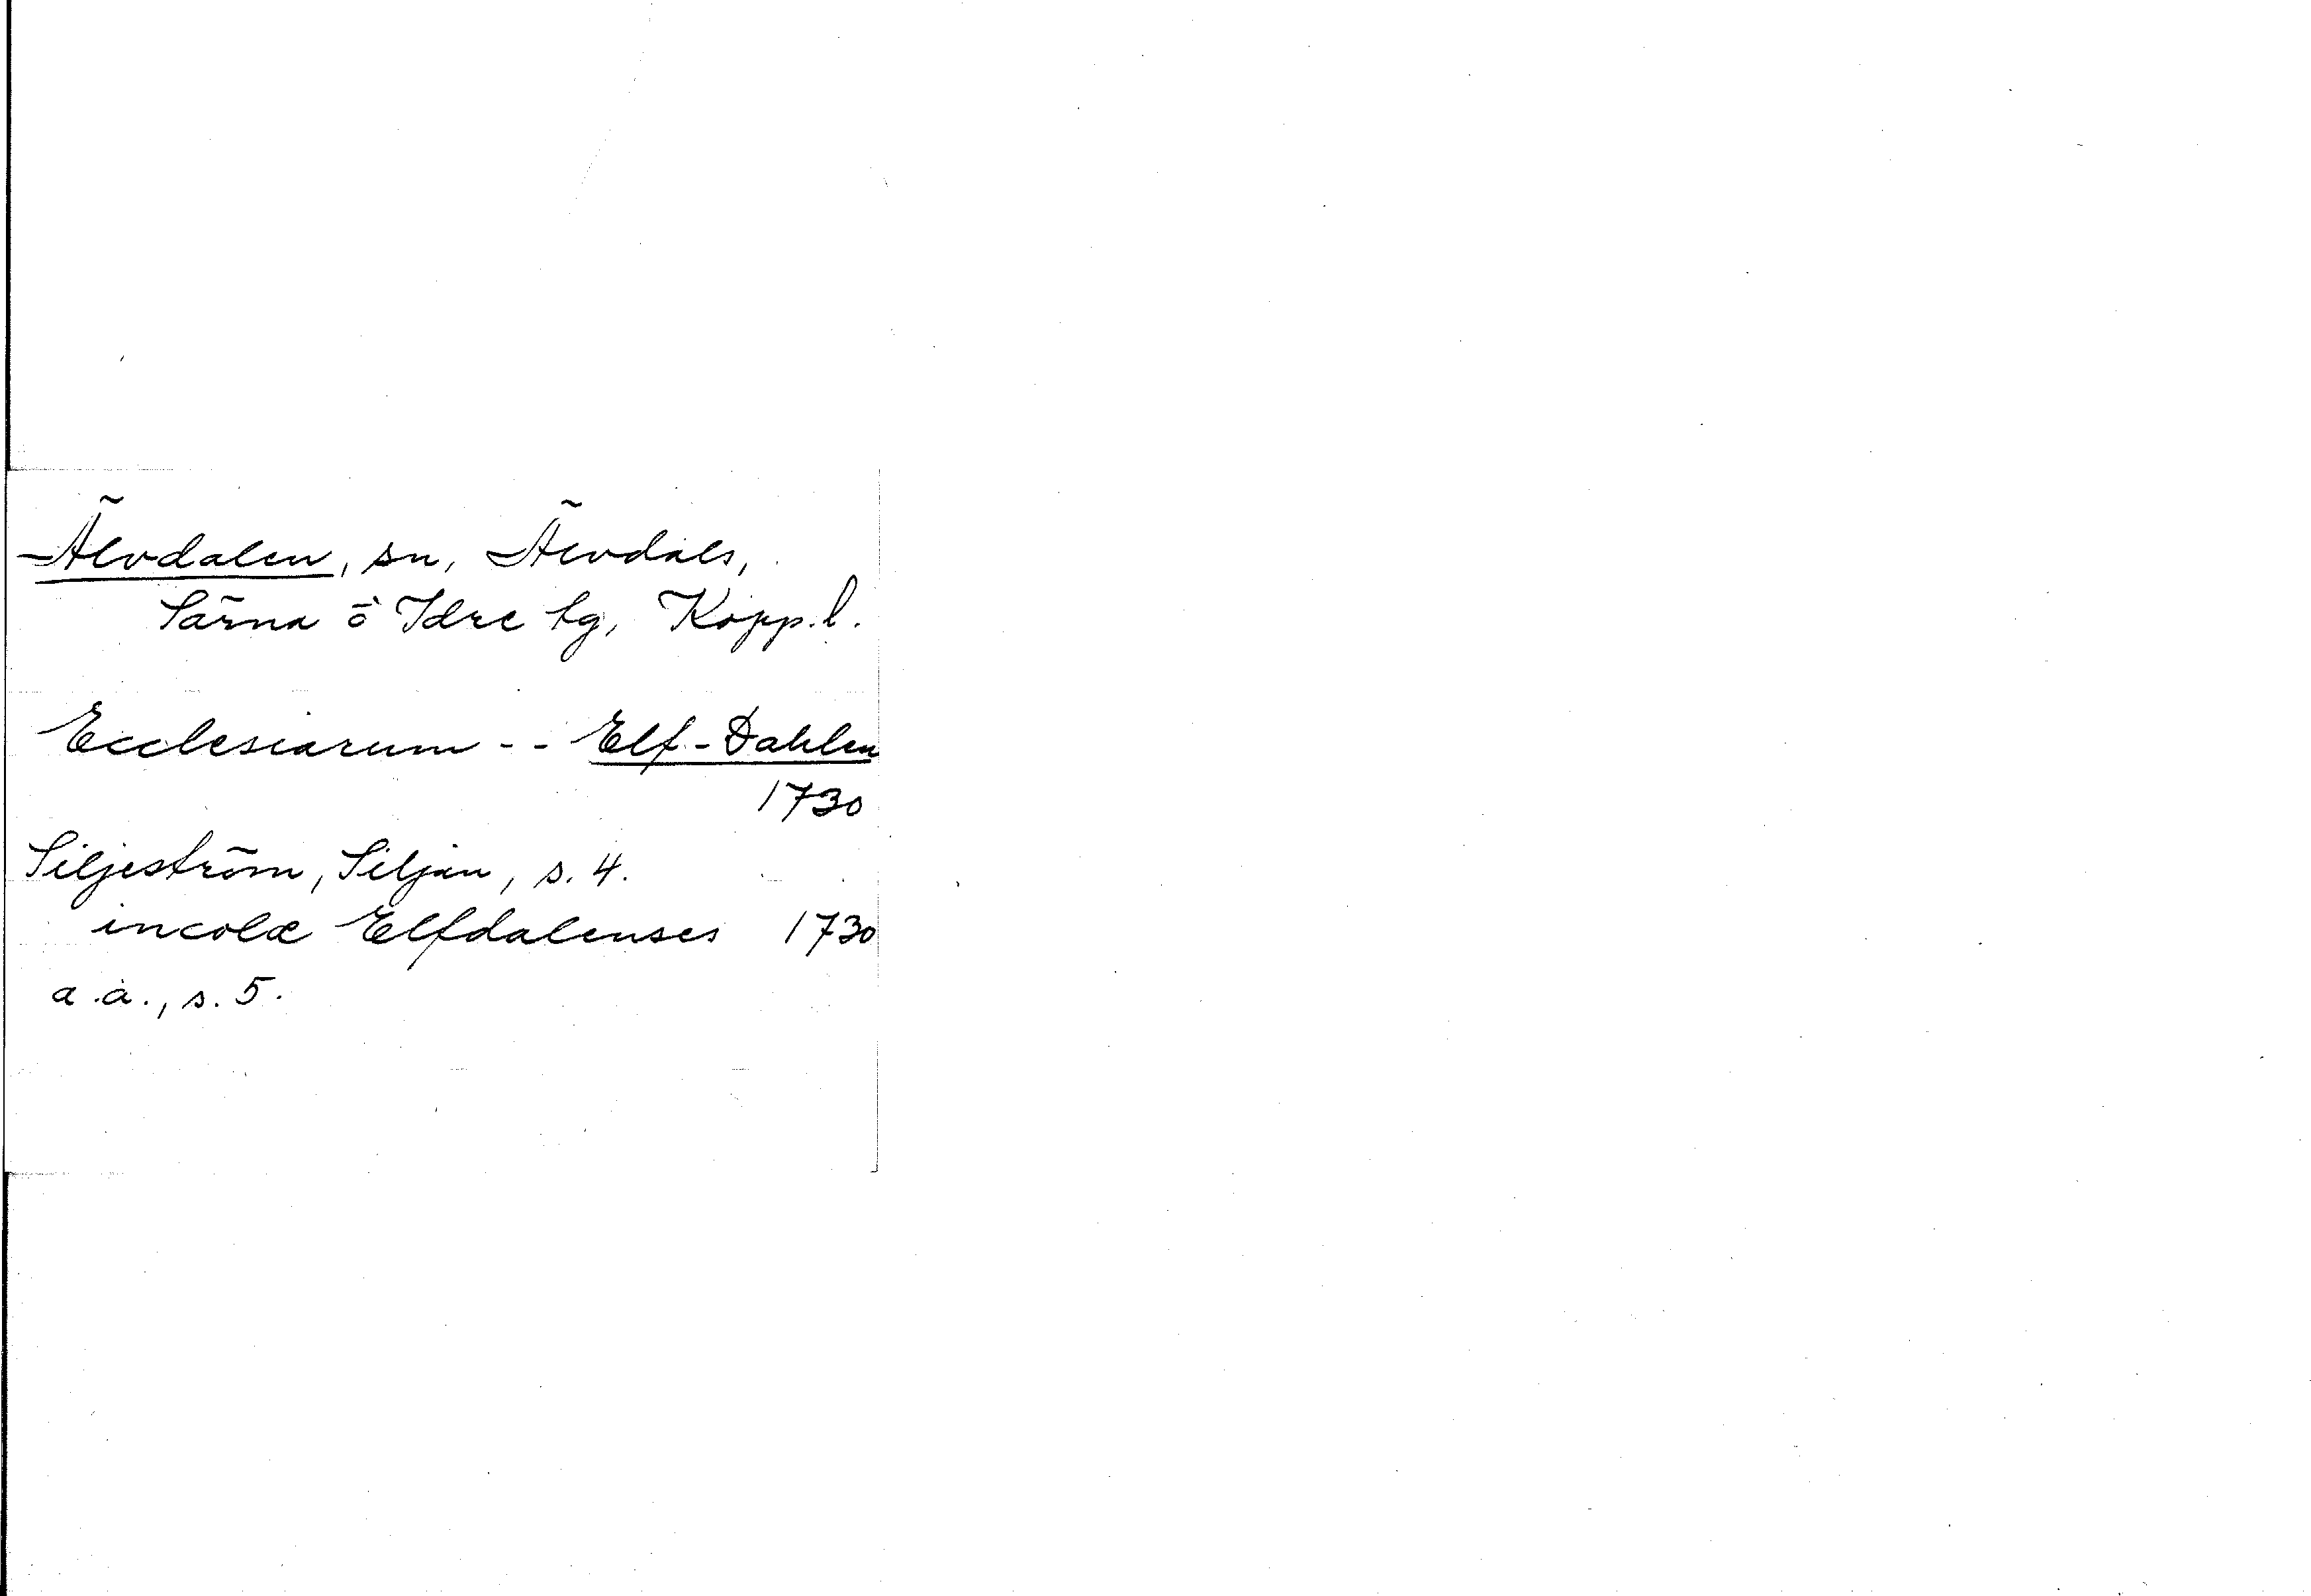 Älvdalen, sn, Älvdals,
Särna o Idre tg, Kopp.l.
Ecclesiarum -- Elf-Dahlen
1730
Siljeström, Siljan, s. 4.
incolæ Elfdalenses 1730
a.a., s. 5.